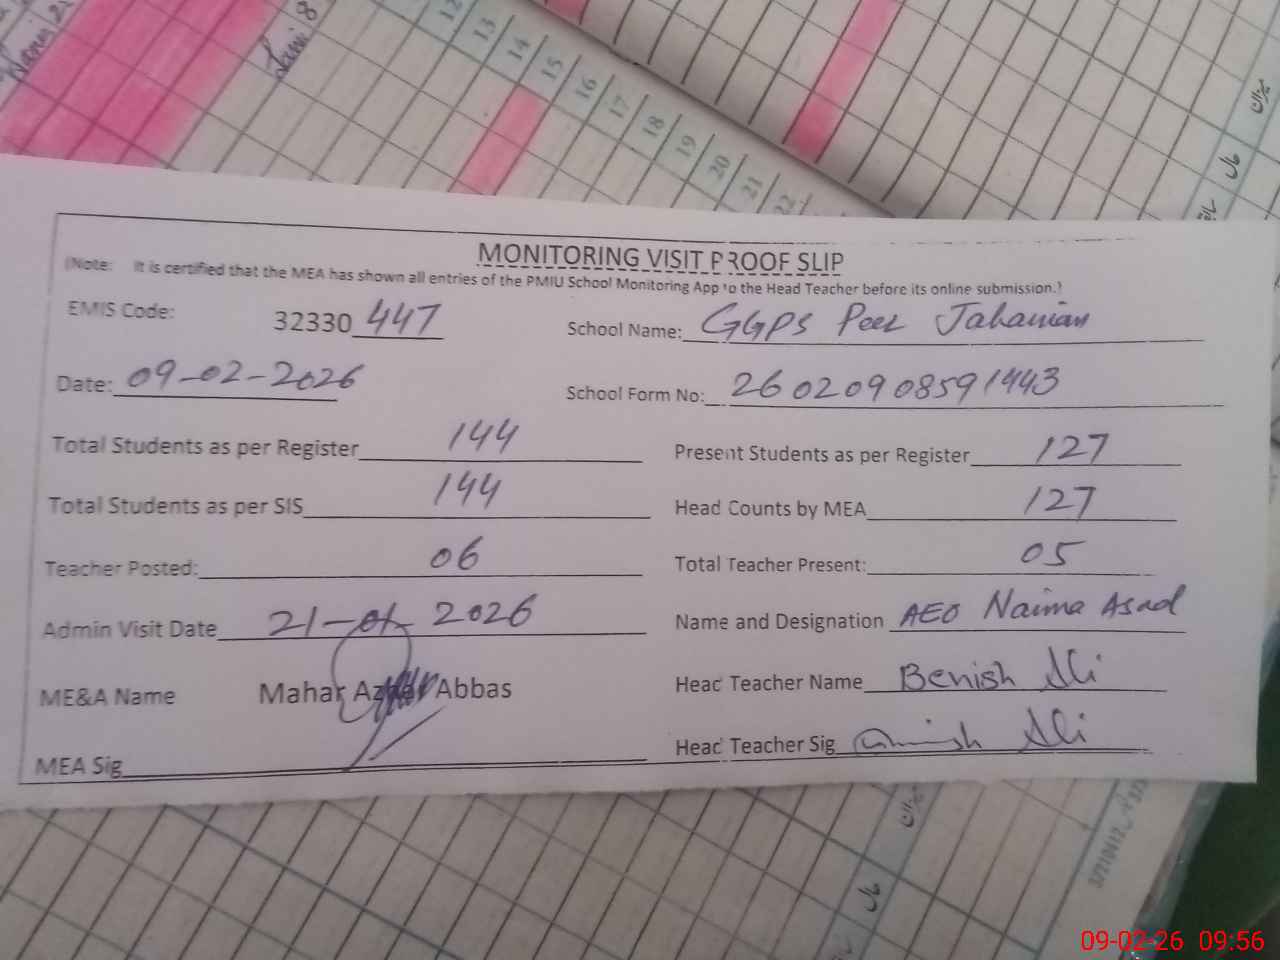 12
13
14
15
16
17
18
19
20
21
22
میزان
MONITORING VISIT PROOF SLIP
(Note: It is certified that the MEA has shown all entries of the PMIU School Monitoring App to the Head Teacher before its online submission.)
EMIS Code: 32330447 School Name: GGPS Peer Jahanian
Date: 09-02-2026 School Form No: 26020908591443
Total Students as per Register 144 Present Students as per Register 127
Total Students as per SIS 144 Head Counts by MEA 127
Teacher Posted: 06 Total Teacher Present: 05
Admin Visit Date 21-01-2026 Name and Designation AEO Naima Asad
ME&A Name Mahar Azhar Abbas Head Teacher Name Benish Ali
MEA Sig Head Teacher Sig Benish Ali
میزان
09-02-26 09:56